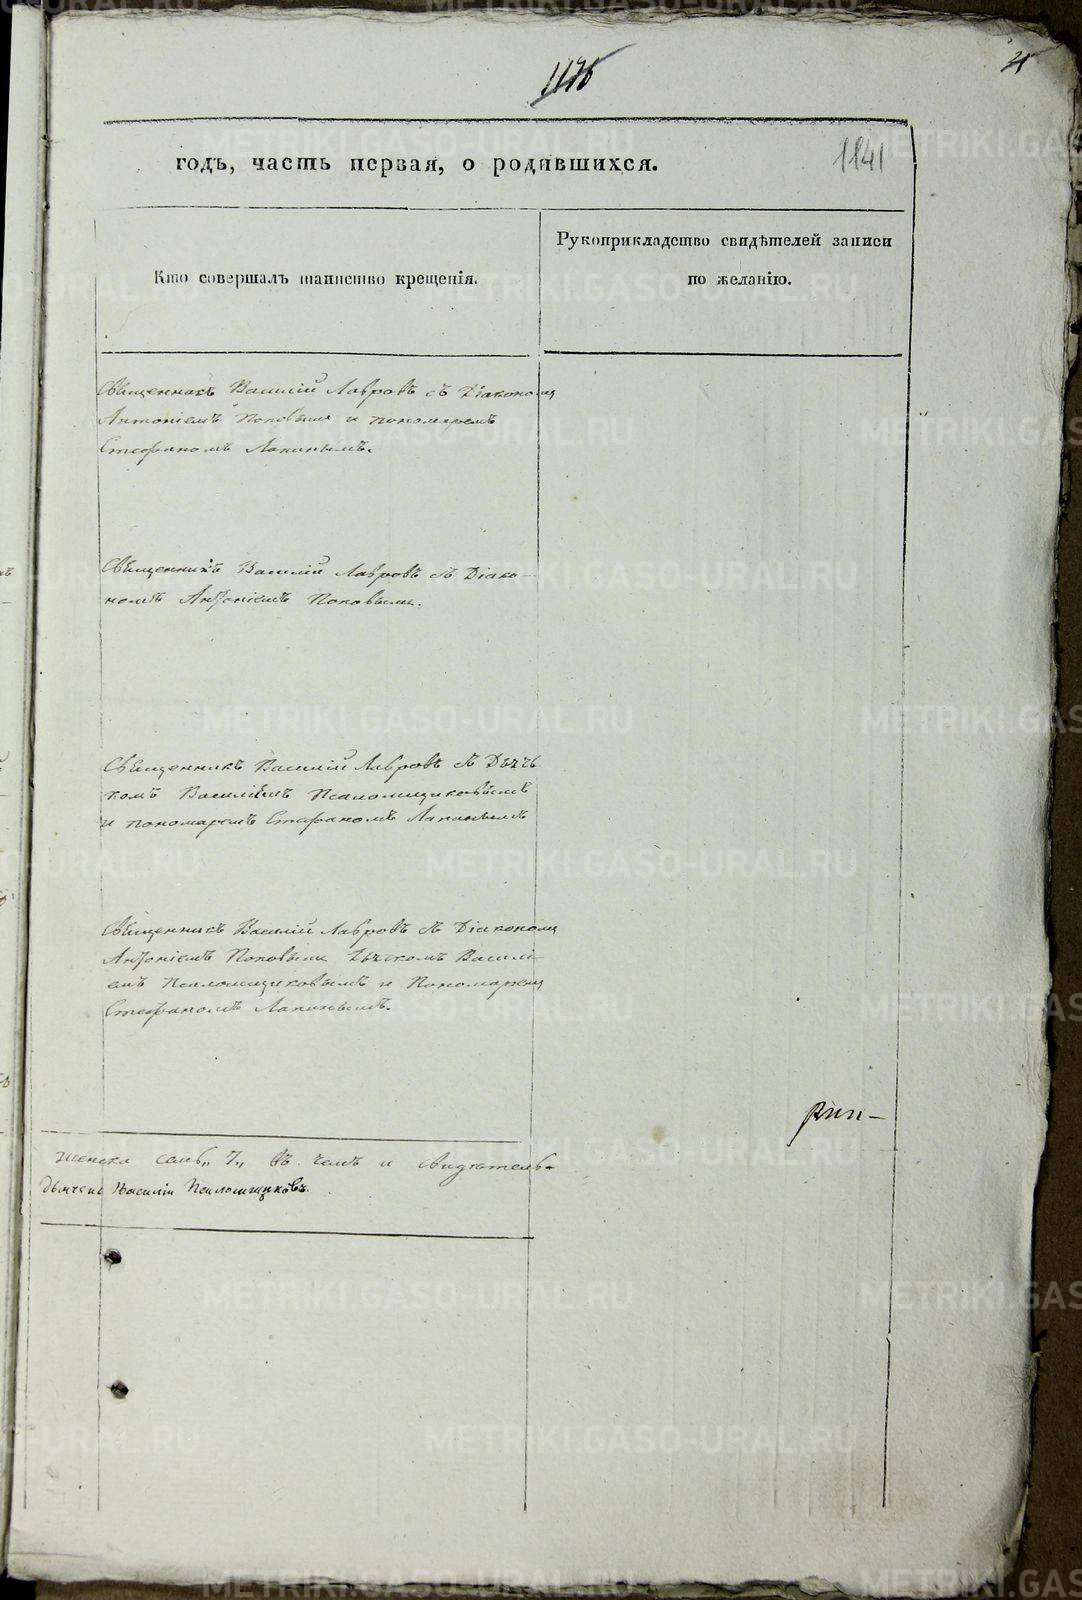 1176
21
1141
годъ, часть первая, о родившихся.
Кто совершалъ таинство крещенія.
Рукоприкладство свидѣтелей записи
по желанію.
Священникъ Василій Лавровъ съ Діакономъ
Антоніемъ Поповымъ и пономаремъ
Стефаномъ Лапинымъ.
Священникъ Василій Лавровъ съ Діако-
номъ Антоніемъ Поповымъ.
Священникъ Василій Лавровъ съ Дьяч
комъ Василіемъ Псаломщиковымъ
и пономаремъ Стефаномъ Лапинымъ
Священникъ Василій Лавровъ съ Діакономъ
Антоніемъ Поповымъ Дьячкомъ Василі-
емъ Псаломщиковымъ и Пономаремъ
Стефаномъ Лапинымъ.
женска семь „7„ въ чемъ и свидѣтель-
дьячекъ Василій Псаломщиковъ.
METRIKI.GASO-URAL.RU